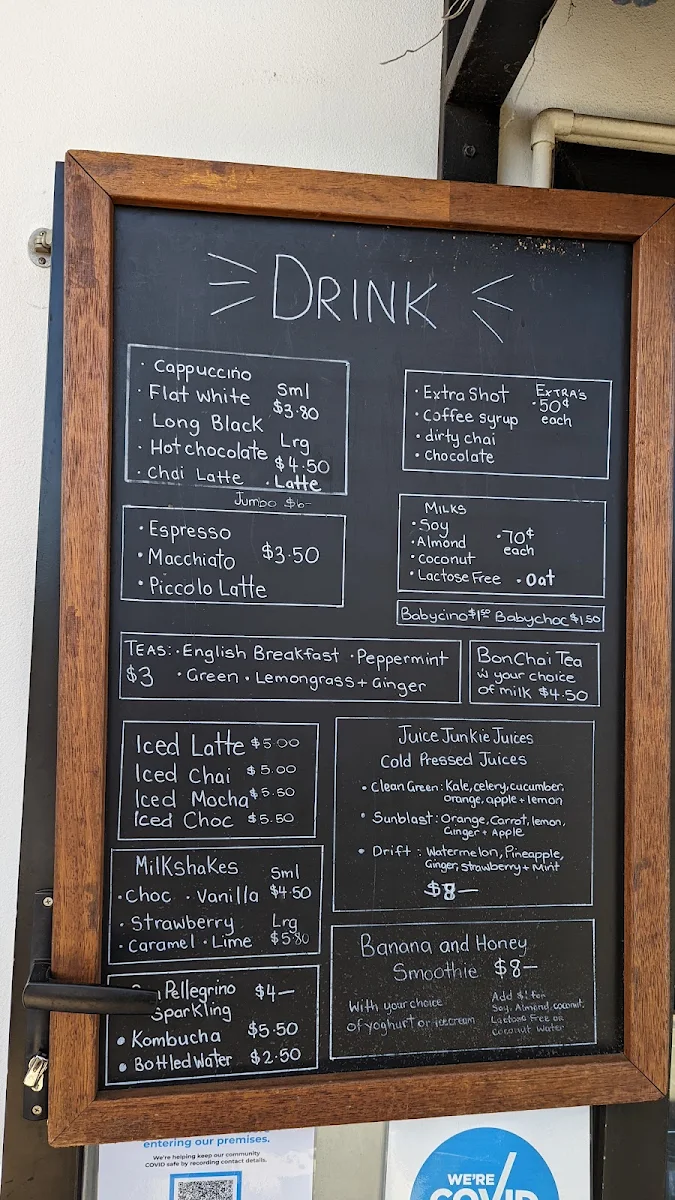 DRINK
· Cappuccino
· Flat white
· Long Black
· Hot chocolate
· Chai Latte · Latte
Sml
$3.80
Lrg
$4.50
Jumbo $6-
· Extra Shot
· Coffee syrup
· dirty chai
· chocolate
EXTRA'S
·50¢
each
· Espresso
· Macchiato $3.50
· Piccolo Latte
MILKS
· Soy
· Almond
· Coconut
· Lactose Free · Oat
·70¢
each
Babycino $1.50 Babychoc $1.50
TEAS: · English Breakfast · Peppermint
$3 · Green · Lemongrass + Ginger
BonChai Tea
w your choice
of milk $4.50
Iced Latte $5.00
Iced Chai $5.00
Iced Mocha $5.50
Iced Choc $5.50
Juice Junkie Juices
Cold Pressed Juices
· Clean Green: Kale, celery, cucumber,
orange, apple + lemon
· Sunblast: Orange, Carrot, lemon,
Ginger + Apple
· Drift: Watermelon, Pineapple,
Ginger, strawberry + Mint
$8—
Milkshakes
· Choc · Vanilla
· Strawberry
· Caramel · Lime
Sml
$4.50
Lrg
$5.80
Banana and Honey
Smoothie $8—
With your choice
of yoghurt or icecream
Add $1 for
Soy, Almond, coconut,
Lactose Free or
coconut water
Pellegrino $4—
Sparkling
• Kombucha $5.50
• Bottled Water $2.50
entering our premises.
We're helping keep our community
COVID safe by recording contact details.
WE'RE